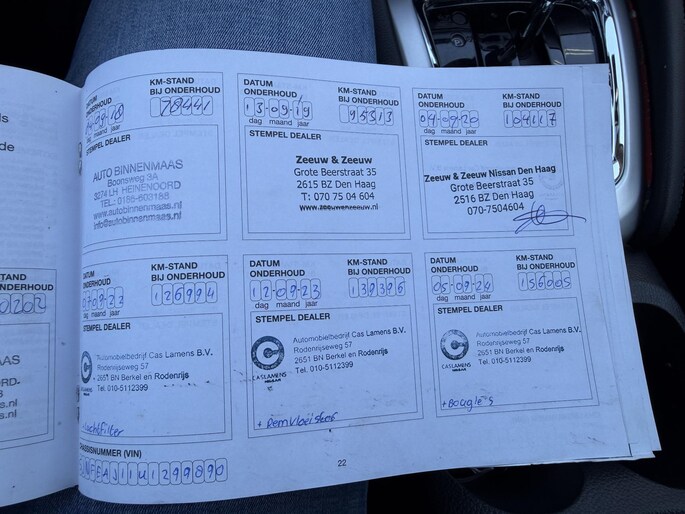 ls
de
STAND
ONDERHOUD
0202
AAS
ORD
s.nl
s.nl
DATUM
ONDERHOUD
04-09-18
dag maand jaar
KM-STAND
BIJ ONDERHOUD
78441
STEMPEL DEALER
AUTO BINNENMAAS
Boonsweg 3A
3274 LH HEINENOORD
TEL.: 0186-603188
www.autobinnenmaas.nl
info@autobinnenmaas.nl
DATUM
ONDERHOUD
13-09-19
dag maand jaar
KM-STAND
BIJ ONDERHOUD
95313
STEMPEL DEALER
Zeeuw & Zeeuw
Grote Beerstraat 35
2615 BZ Den Haag
T: 070 75 04 604
www.zeeuwenzeeuw.nl
DATUM
ONDERHOUD
04-09-20
dag maand jaar
KM-STAND
BIJ ONDERHOUD
104117
STEMPEL DEALER
Zeeuw & Zeeuw Nissan Den Haag
Grote Beerstraat 35
2516 BZ Den Haag
070-7504604
DATUM
ONDERHOUD
07-09-22
dag maand jaar
KM-STAND
BIJ ONDERHOUD
126994
STEMPEL DEALER
CASLAMENS
Automobielbedrijf Cas Lamens B.V.
Rodenrijseweg 57
2651 BN Berkel en Rodenrijs
Tel. 010-5112399
+ Luchtfilter
DATUM
ONDERHOUD
12-09-23
dag maand jaar
KM-STAND
BIJ ONDERHOUD
139396
STEMPEL DEALER
CASLAMENS
Automobielbedrijf Cas Lamens B.V.
Rodenrijseweg 57
2651 BN Berkel en Rodenrijs
Tel. 010-5112399
+ Remvloeistof
DATUM
ONDERHOUD
05-09-24
dag maand jaar
KM-STAND
BIJ ONDERHOUD
156005
STEMPEL DEALER
CASLAMENS
Automobielbedrijf Cas Lamens B.V.
Rodenrijseweg 57
2651 BN Berkel en Rodenrijs
Tel. 010-5112399
+ Bougie's
CHASSISNUMMER (VIN)
22